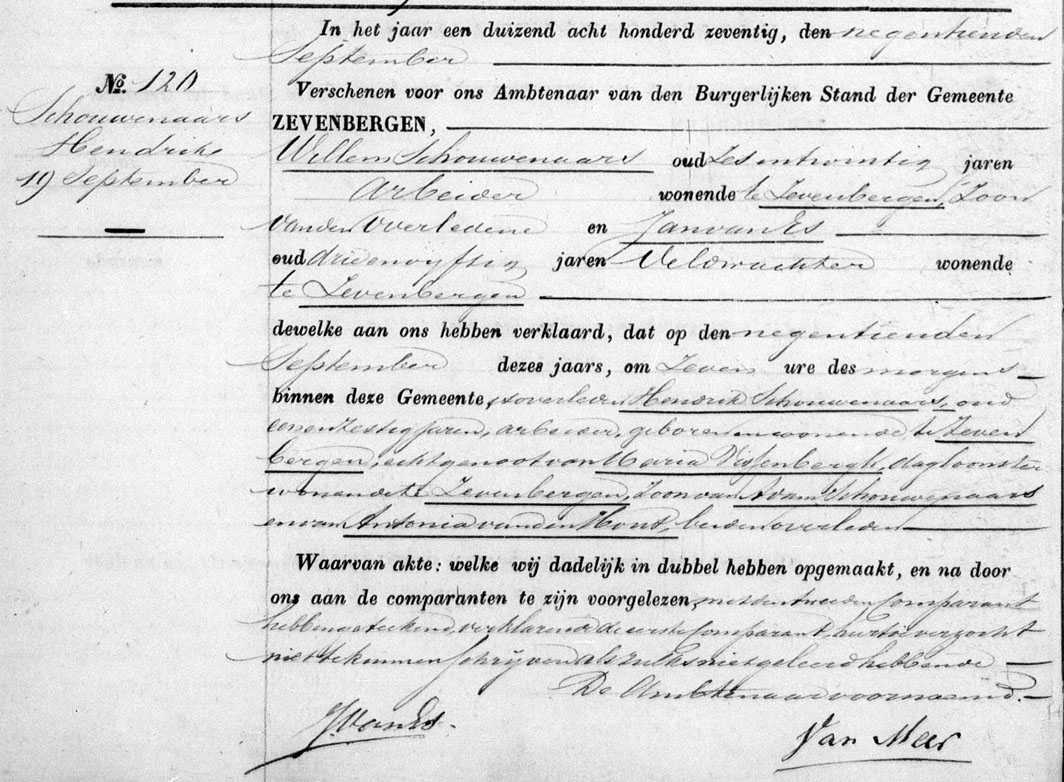 In het jaar een duizend acht honderd zeventig, den negentienden
September
No. 120
Verschenen voor ons Ambtenaar van den Burgerlijken Stand der Gemeente
Schouwenaars
ZEVENBERGEN,
Hendrik
Willem Schouwenaars oud zes en twintig jaren
19 September
Arbeider wonende te Zevenbergen, Zoon
van den overledene en Jan van Es
oud drie en vyftig jaren Veldwachter wonende
te Zevenbergen
dewelke aan ons hebben verklaard, dat op den negentienden
September dezes jaars, om Zeven ure des morgens
binnen deze Gemeente, is overleden Hendrik Schouwenaars, oud
een en zestig jaren, arbeider, geboren en wonende te Zeven
bergen, echtgenoot van Maria Vissenbergh, dagloonster
wonende te Zevenbergen, Zoon van Adam Schouwenaars
en van Antonia van den Hout, beiden overleden
Waarvan akte: welke wij dadelijk in dubbel hebben opgemaakt, en na door
ons aan de comparanten te zijn voorgelezen, met den tweeden Comparant
hebben geteekend, verklarende de eerste Comparant, hiertoe verzocht
niet te kunnen schrijven als zulks niet geleerd hebbende
De Ambtenaar voornoemd.
J van Es.
Van Meer